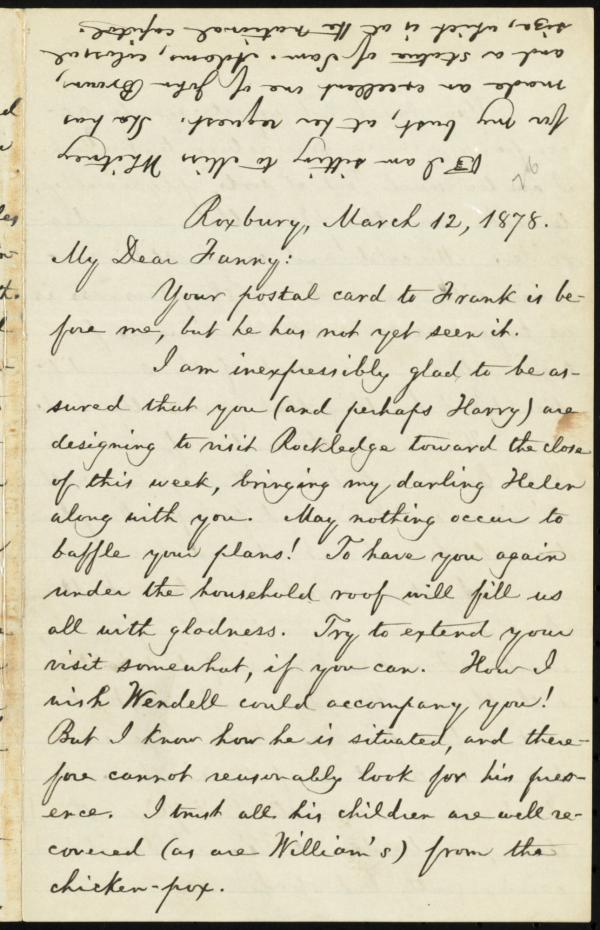 I am sitting to Miss Whitney
for my bust, at her request. She has
made an excellent one of John Brown,
and a statue of Sam. Adams, colossal
size, which is at the national capitol.
Roxbury, March 12, 1878.
My Dear Fanny:
Your postal card to Frank is be-
fore me, but he has not yet seen it.
I am inexpressibly glad to be as-
sured that you (and perhaps Harry) are
designing to visit Rockledge toward the close
of this week, bringing my darling Helen
along with you. May nothing occur to
baffle your plans! To have you again
under the household roof will fill us
all with gladness. Try to extend your
visit somewhat, if you can. How I
wish Wendell could accompany you!
But I know how he is situated, and there-
fore cannot reasonably look for his pres-
ence. I trust all his children are well re-
covered (as are William's) from the
chicken-pox.